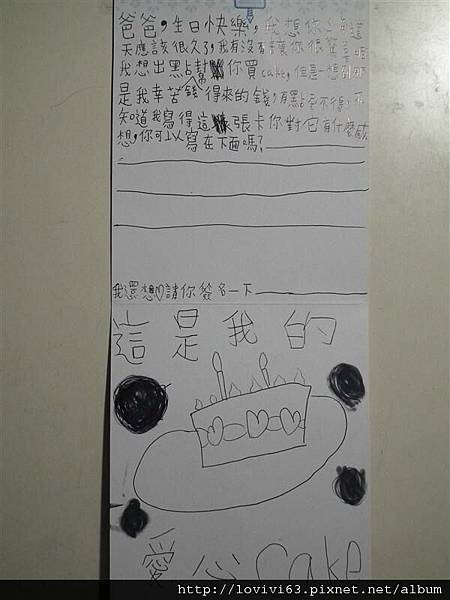 爸爸,生日快樂,我想你上到這
天應該很久了,我有沒有讓你很驚喜呢
我想出黑占幫你買cake,但是一想到那
是我幸苦錢得來的錢,有點舍不得,不
知道我寫得這張卡你對它有什麼感
想,你可以寫在下面嗎?
我還想請你簽名一下
這是我的
愛心cake
http://lovivi63.pixnet.net/album